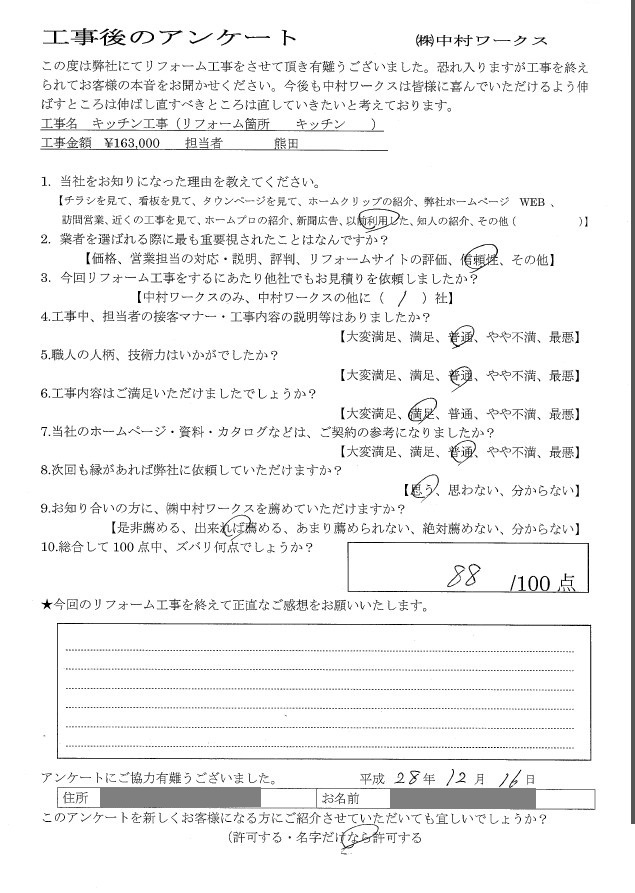 工事後のアンケート ㈱中村ワークス
この度は弊社にてリフォーム工事をさせて頂き有難うございました。恐れ入りますが工事を終え
られてお客様の本音をお聞かせください。今後も中村ワークスは皆様に喜んでいただけるよう伸
ばすところは伸ばし直すべきところは直していきたいと考えております。
工事名 キッチン工事（リフォーム箇所 キッチン ）
工事金額 ¥163,000 担当者 熊田
1. 当社をお知りになった理由を教えてください。
【チラシを見て、看板を見て、タウンページを見て、ホームクリップの紹介、弊社ホームページ WEB 、
訪問営業、近くの工事を見て、ホームプロの紹介、新聞広告、以前利用した、知人の紹介、その他（ ）】
2. 業者を選ばれる際に最も重要視されたことはなんですか？
【価格、営業担当の対応・説明、評判、リフォームサイトの評価、信頼性、その他】
3. 今回リフォーム工事をするにあたり他社でもお見積りを依頼しましたか？
【中村ワークスのみ、中村ワークスの他に（ / ）社】
4.工事中、担当者の接客マナー・工事内容の説明等はありましたか？
【大変満足、満足、普通、やや不満、最悪】
5.職人の人柄、技術力はいかがでしたか？
【大変満足、満足、普通、やや不満、最悪】
6.工事内容はご満足いただけましたでしょうか？
【大変満足、満足、普通、やや不満、最悪】
7.当社のホームページ・資料・カタログなどは、ご契約の参考になりましたか？
【大変満足、満足、普通、やや不満、最悪】
8.次回も縁があれば弊社に依頼していただけますか？
【思う、思わない、分からない】
9.お知り合いの方に、㈱中村ワークスを薦めていただけますか？
【是非薦める、出来れば薦める、あまり薦められない、絶対薦めない、分からない】
10.総合して100点中、ズバリ何点でしょうか？
88 /100点
★今回のリフォーム工事を終えて正直なご感想をお願いいたします。
アンケートにご協力有難うございました。 平成 28 年 12 月 16 日
住所 お名前
このアンケートを新しくお客様になる方にご紹介させていただいても宜しいでしょうか？
（許可する・名字だけなら許可する